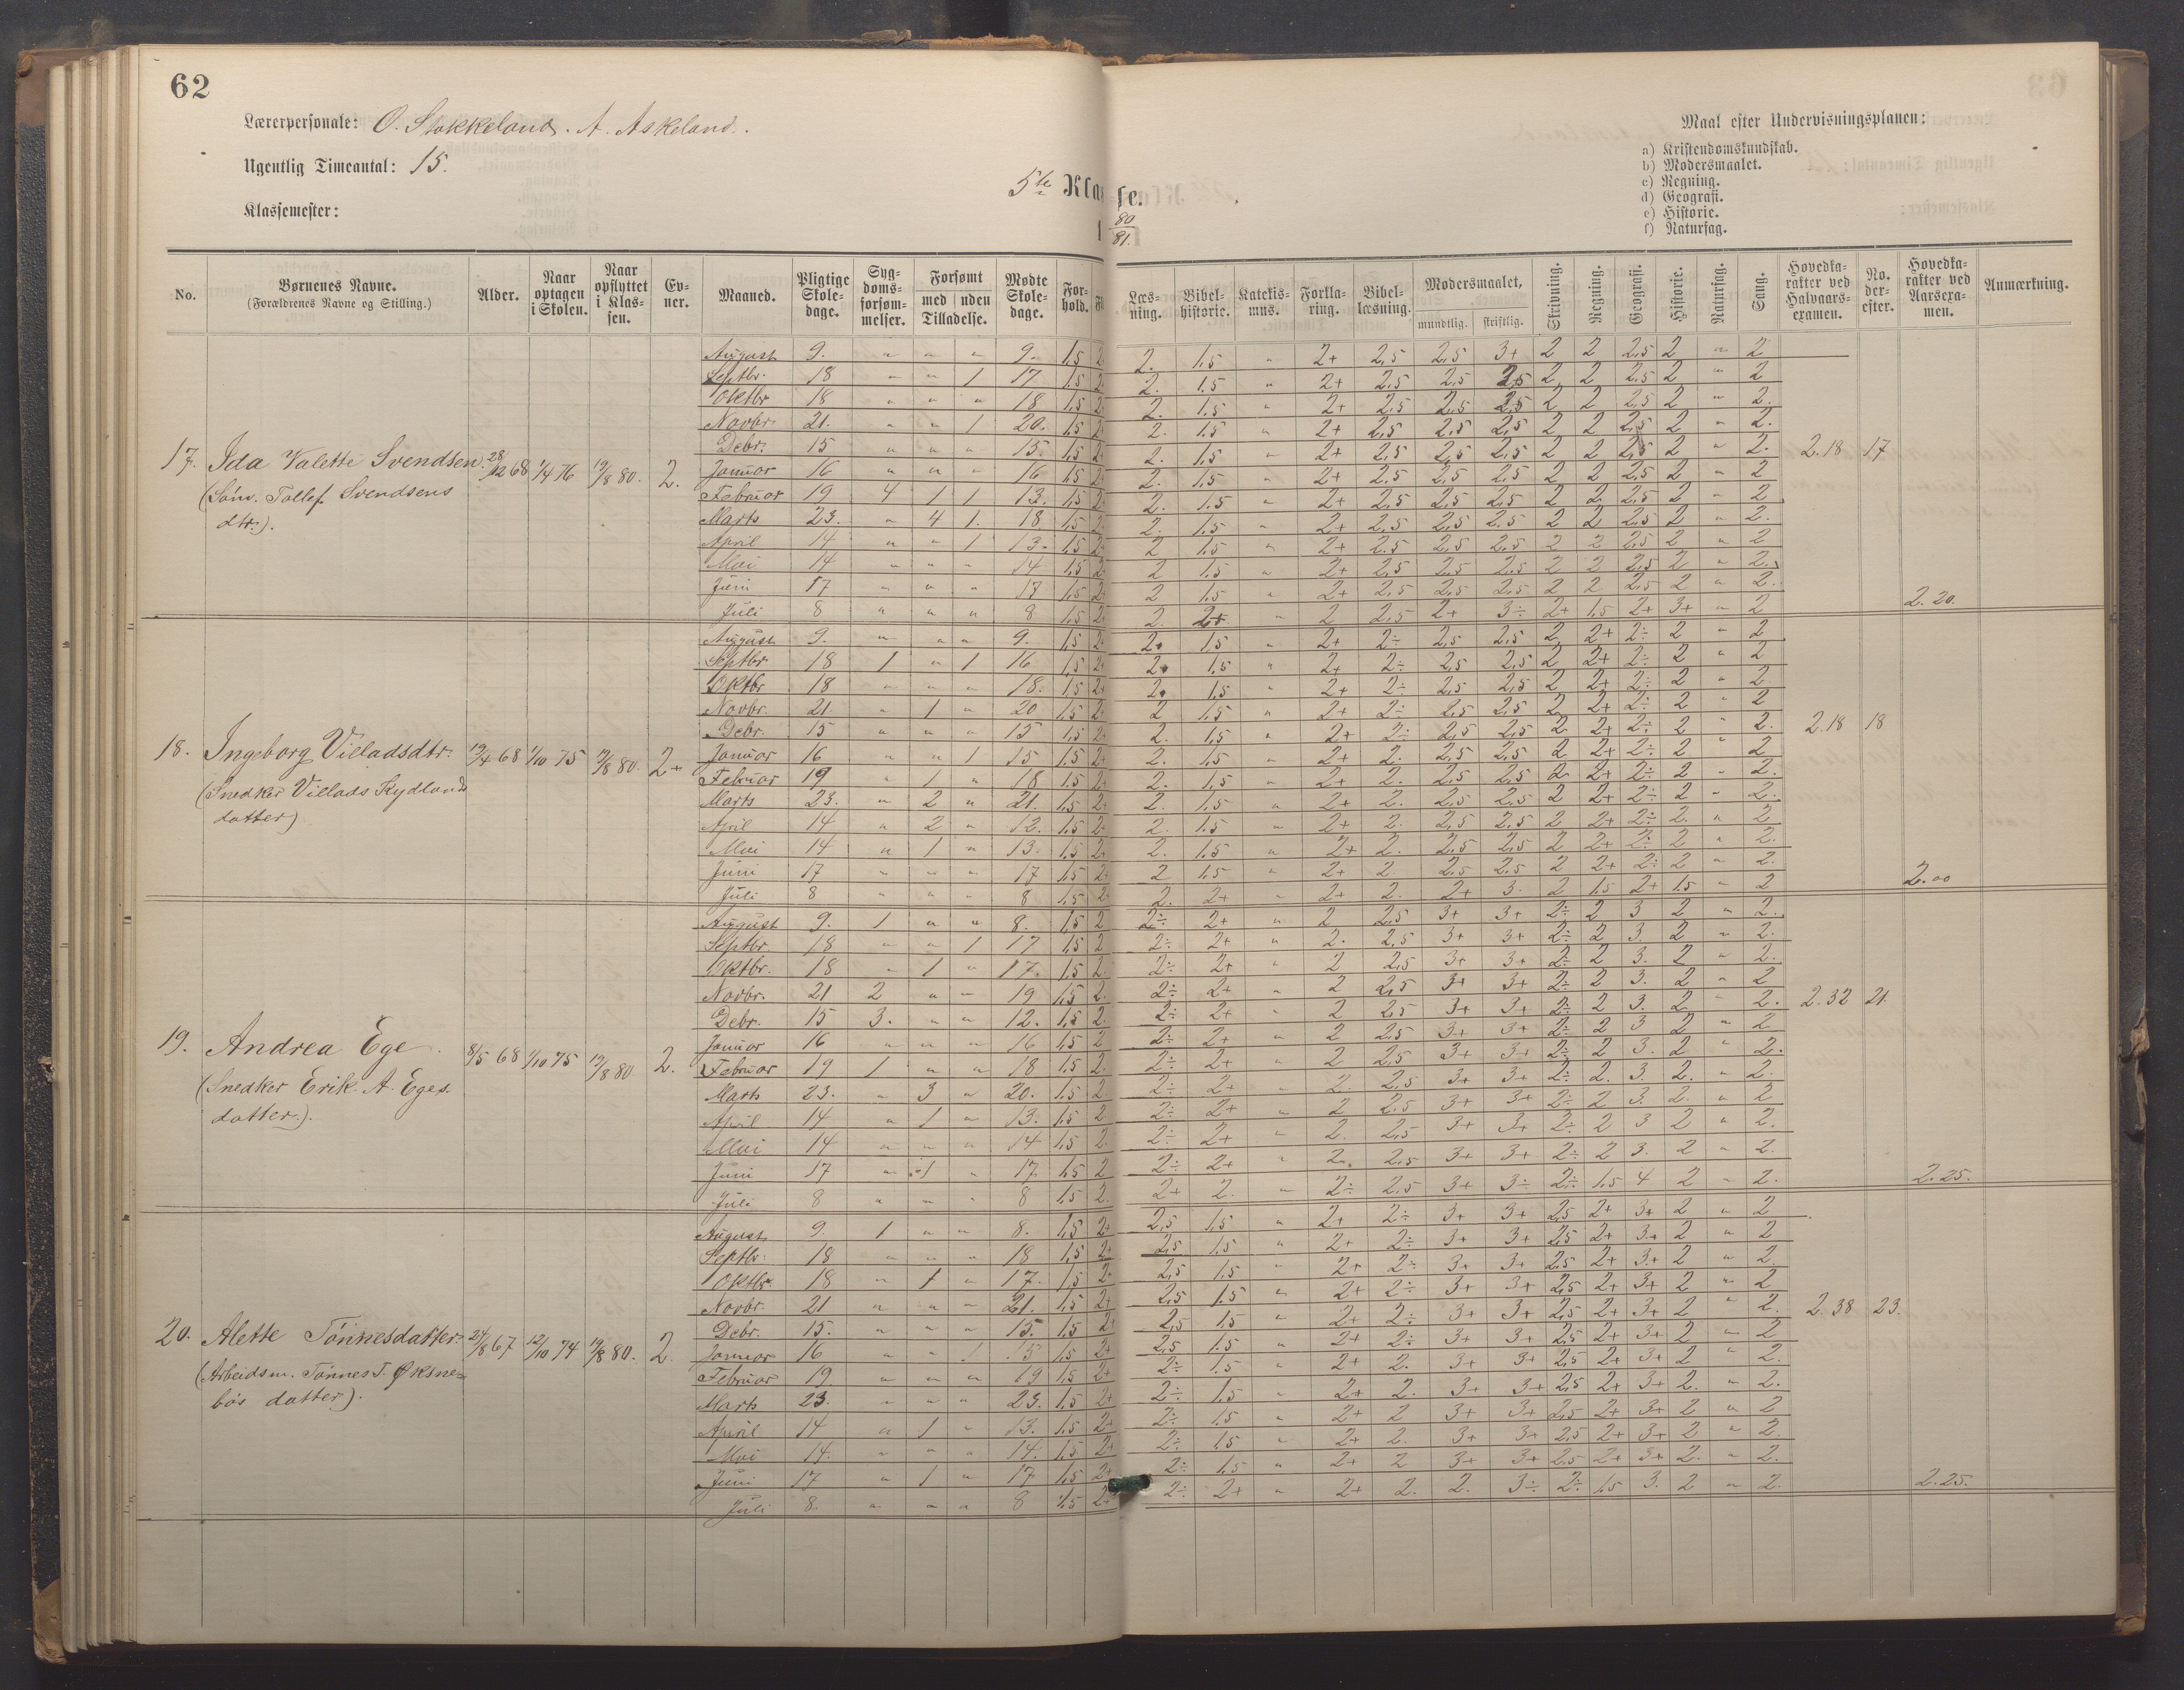 62
Lærerpersonale: O. Stokkeland. A. Askeland.
Ugentlig Timeantal: 15.
Klassemester:
5te Klasse.
1 80/81.
Maal efter Undervisningsplanen:
a) Kristendomskundskab.
b) Modersmaalet.
c) Regning.
d) Geografi.
e) Historie.
f) Naturfag.
No. Børnenes Navne. (Forældrenes Navne og Stilling.) Alder. Naar optagen i Skolen. Naar opflyttet i Klassen. Evner. Maaned. Pligtige Skoledage. Sygdomsforsømmelser. Forsømt med uden Tilladelse. Mødte Skoledage. Forhold. Læsning. Bibelhistorie. Katekismus. Forklaring. Bibellæsning. Modersmaalet, mundtlig. skriftlig. Skrivning. Regning. Geografi. Historie. Naturfag. Sang. Hovedkarakter ved Halvaarsexamen. No. derefter. Hovedkarakter ved Aarsexamen. Anmærkning.
17. Ida Valette Svendsen. 28/12 68 1/4 76 19/8 80. 2.
(Søm. Tollef Svendsens
dtr.).
August 9. " " " 9. 1,5 2. 1.5 " 2+ 2,5 2,5 3+ 2 2 2,5 2 " 2
Septbr. 18 " " 1 17 1,5 2. 1.5 " 2+ 2,5 2,5 2,5 2 2 2,5 2 " 2
Oktbr 18 " " " 18 1,5 2. 1.5 " 2+ 2,5 2,5 2,5 2 2 2,5 2 " 2.
Novbr. 21. " " 1 20. 1,5 2. 1.5 " 2+ 2,5 2,5 2,5 2 2 2,5 2 " 2.
Debr. 15 " " " 15. 1,5 2. 1.5 " 2+ 2,5 2,5 2,5 2 2 2,5 2 " 2. 2.18 17
Januar 16 " " " 16 1,5 2. 1.5 " 2+ 2,5 2,5 2,5 2 2 2,5 2 " 2
Februar 19 4 1 1 13. 1,5 2. 1.5 " 2+ 2,5 2,5 2,5 2 2 2,5 2 " 2
Marts 23. " 4 1. 18 1,5 2. 1.5 " 2+ 2,5 2,5 2,5 2 2 2,5 2 " 2.
April 14 " " 1 13. 1,5 2 1.5 " 2+ 2,5 2,5 2,5 2 2 2,5 2 " 2
Mai 14 " " " 14 1,5 2 1.5 " 2+ 2,5 2,5 2,5 2 2 2,5 2 " 2.
Juni 17 " " " 17 1,5 2 1.5 " 2+ 2,5 2,5 2,5 2 2 2,5 2 " 2.
Juli 8 " " " 8 1,5 2. 2+ " 2 2,5 2+ 3÷ 2+ 1,5 2+ 3+ " 2 2.20.
18. Ingeborg Villadsdtr. 19/4 68 1/10 75 19/8 80. 2+
(Snedker Villads Rydlands
datter)
August 9. " " " 9. 1,5 2. 1.5 " 2+ 2÷ 2,5 2,5 2 2+ 2÷ 2 " 2
Septbr 18 1 " 1 16 1,5 2. 1.5 " 2+ 2÷ 2,5 2,5 2 2+ 2÷ 2 " 2
Oktbr 18 " " " 18. 1,5 2. 1.5 " 2+ 2÷ 2,5 2,5 2 2+ 2÷ 2 " 2
Novbr. 21 " 1 " 20 1,5 2 1.5 " 2+ 2÷ 2,5 2,5 2 2+ 2÷ 2 " 2
Debr. 15 " " " 15 1,5 2. 1.5 " 2+ 2÷ 2,5 2,5 2 2+ 2÷ 2 " 2. 2.18 18
Januar 16 " " 1 15 1,5 2. 1.5 " 2+ 2. 2,5 2,5 2 2+ 2÷ 2 " 2
Februar 19 " 1 " 18 1,5 2. 1.5 " 2+ 2. 2,5 2,5 2 2+ 2÷ 2 " 2.
Marts 23. " 2 " 21. 1,5 2. 1.5 " 2+ 2. 2,5 2,5 2 2+ 2÷ 2 " 2.
April 14 " 2 " 12. 1,5 2. 1.5 " 2+ 2. 2,5 2,5 2 2+ 2÷ 2. " 2
Mai 14 " 1 " 13. 1,5 2. 1.5 " 2+ 2. 2,5 2,5 2 2+ 2÷ 2 " 2.
Juni 17 " " " 17 1,5 2 1.5 " 2+ 2 2,5 2,5 2 2+ 2÷ 2 " 2.
Juli 8 " " " 8 1,5 2. 2+ " 2+ 2. 2+ 3. 2 1.5 2+ 1.5 " 2 2.00
19. Andrea Ege. 8/5 68 1/10 75 19/8 80 2.
(Snedker Erik A. Eges
datter.).
August 9. 1 " " 8. 1,5 2 2÷ 2+ " 2 2,5 3+ 3+ 2÷ 2 3 2 " 2.
Septbr. 18 " " 1 17 1,5 2 2÷ 2+ " 2. 2,5 3+ 3+ 2÷ 2 3. 2 " 2.
Oktbr. 18 " 1 " 17. 1,5 2. 2÷ 2+ " 2 2,5 3+ 3+ 2÷ 2 3. 2 " 2.
Novbr. 21 2 " " 19 1,5 2. 2÷ 2+ " 2 2,5 3+ 3+ 2÷ 2 3. 2 " 2
Debr. 15 3. " " 12. 1,5 2. 2÷ 2+ " 2 2,5 3+ 3+ 2÷ 2 3. 2 " 2. 2.32 21.
Januar 16 " " " 16 1,5 2 2÷ 2+ " 2 2,5 3+ 3+ 2÷ 2 3 2 " 2
Februar 19 1 " " 18 1,5 2. 2÷ 2+ " 2 2,5 3+ 3+ 2÷ 2 3. 2 " 2.
Marts 23. " 3 " 20. 1,5 2 2÷ 2+ " 2. 2,5 3+ 3+ 2÷ 2. 3. 2. " 2.
April 14 " 1 " 13. 1,5 2 2÷ 2+ " 2 2,5 3+ 3+ 2÷ 2 3. 2. " 2
Mai 14 " " " 14 1,5 2. 2÷ 2+ " 2. 2,5 3+ 3+ 2÷ 2 3 2 " 2.
Juni 17 " 1 " 17. 1,5 2 2÷ 2+ " 2. 2,5 3+ 3+ 2÷ 2 3. 2 " 2.
Juli 8 " " " 8 1,5 2. 2+ 2. " 2÷ 2,5 3+ 3÷ 2÷ 1,5 4 2 " 2. 2.25.
20. Alette Tønnesdatter. 24/8 67 12/10 74 19/8 80. 2.
(Arbeidsm. Tønnes T. Øksne-
bøs datter).
August 9. 1 " " 8. 1,5 2+ 2,5 1.5 " 2+ 2÷ 3+ 3+ 2,5 2+ 3+ 2 " 2
Septbr. 18 " " " 18 1,5 2+ 2,5 1.5 " 2+ 2÷ 3+ 3+ 2,5 2+ 3+ 2 " 2
Oktbr. 18 " 1 " 17. 1,5 2+ 2,5 1.5 " 2+ 2÷ 3+ 3+ 2,5 2+ 3+ 2 " 2.
Novbr. 21 " " " 21. 1,5 2+ 2,5 1.5 " 2+ 2÷ 3+ 3+ 2,5 2+ 3+ 2 " 2
Debr. 15. " " " 15. 1,5 2+ 2,5 1.5 " 2+ 2÷ 3+ 3+ 2,5 2+ 3+ 2 " 2. 2.38 23.
Januar 16 " " 1 15 1,5 2+ 2,5 1.5 " 2+ 2÷ 3+ 3+ 2,5 2+ 3+ 2 " 2
Februar 19. " " " 19 1,5 2+ 2÷ 1.5 " 2+ 2. 3+ 3+ 2,5 2+ 3+ 2 " 2.
Marts 23. " " " 23. 1,5 2+ 2÷ 1.5 " 2+ 2. 3+ 3+ 2,5 2+ 3+ 2. " 2.
April 14 " 1 " 13. 1,5 2+ 2÷ 1.5 " 2+ 2 3+ 3+ 2,5 2+ 3+ 2 " 2
Mai 14. " " " 14. 1,5 2+ 2÷ 1.5 " 2+ 2. 3+ 3+ 2,5 2+ 3+ 2 " 2.
Juni 17 " 1 " 17 1,5 2+ 2÷ 1.5 " 2+ 2 3+ 3+ 2,5 2+ 3+ 2. " 2.
Juli 8. " " " 8 1,5 2+ 2÷ 2+ " 2+ 2. 2. 3÷ 2÷ 1,5 3. 2 " 2. 2.25.